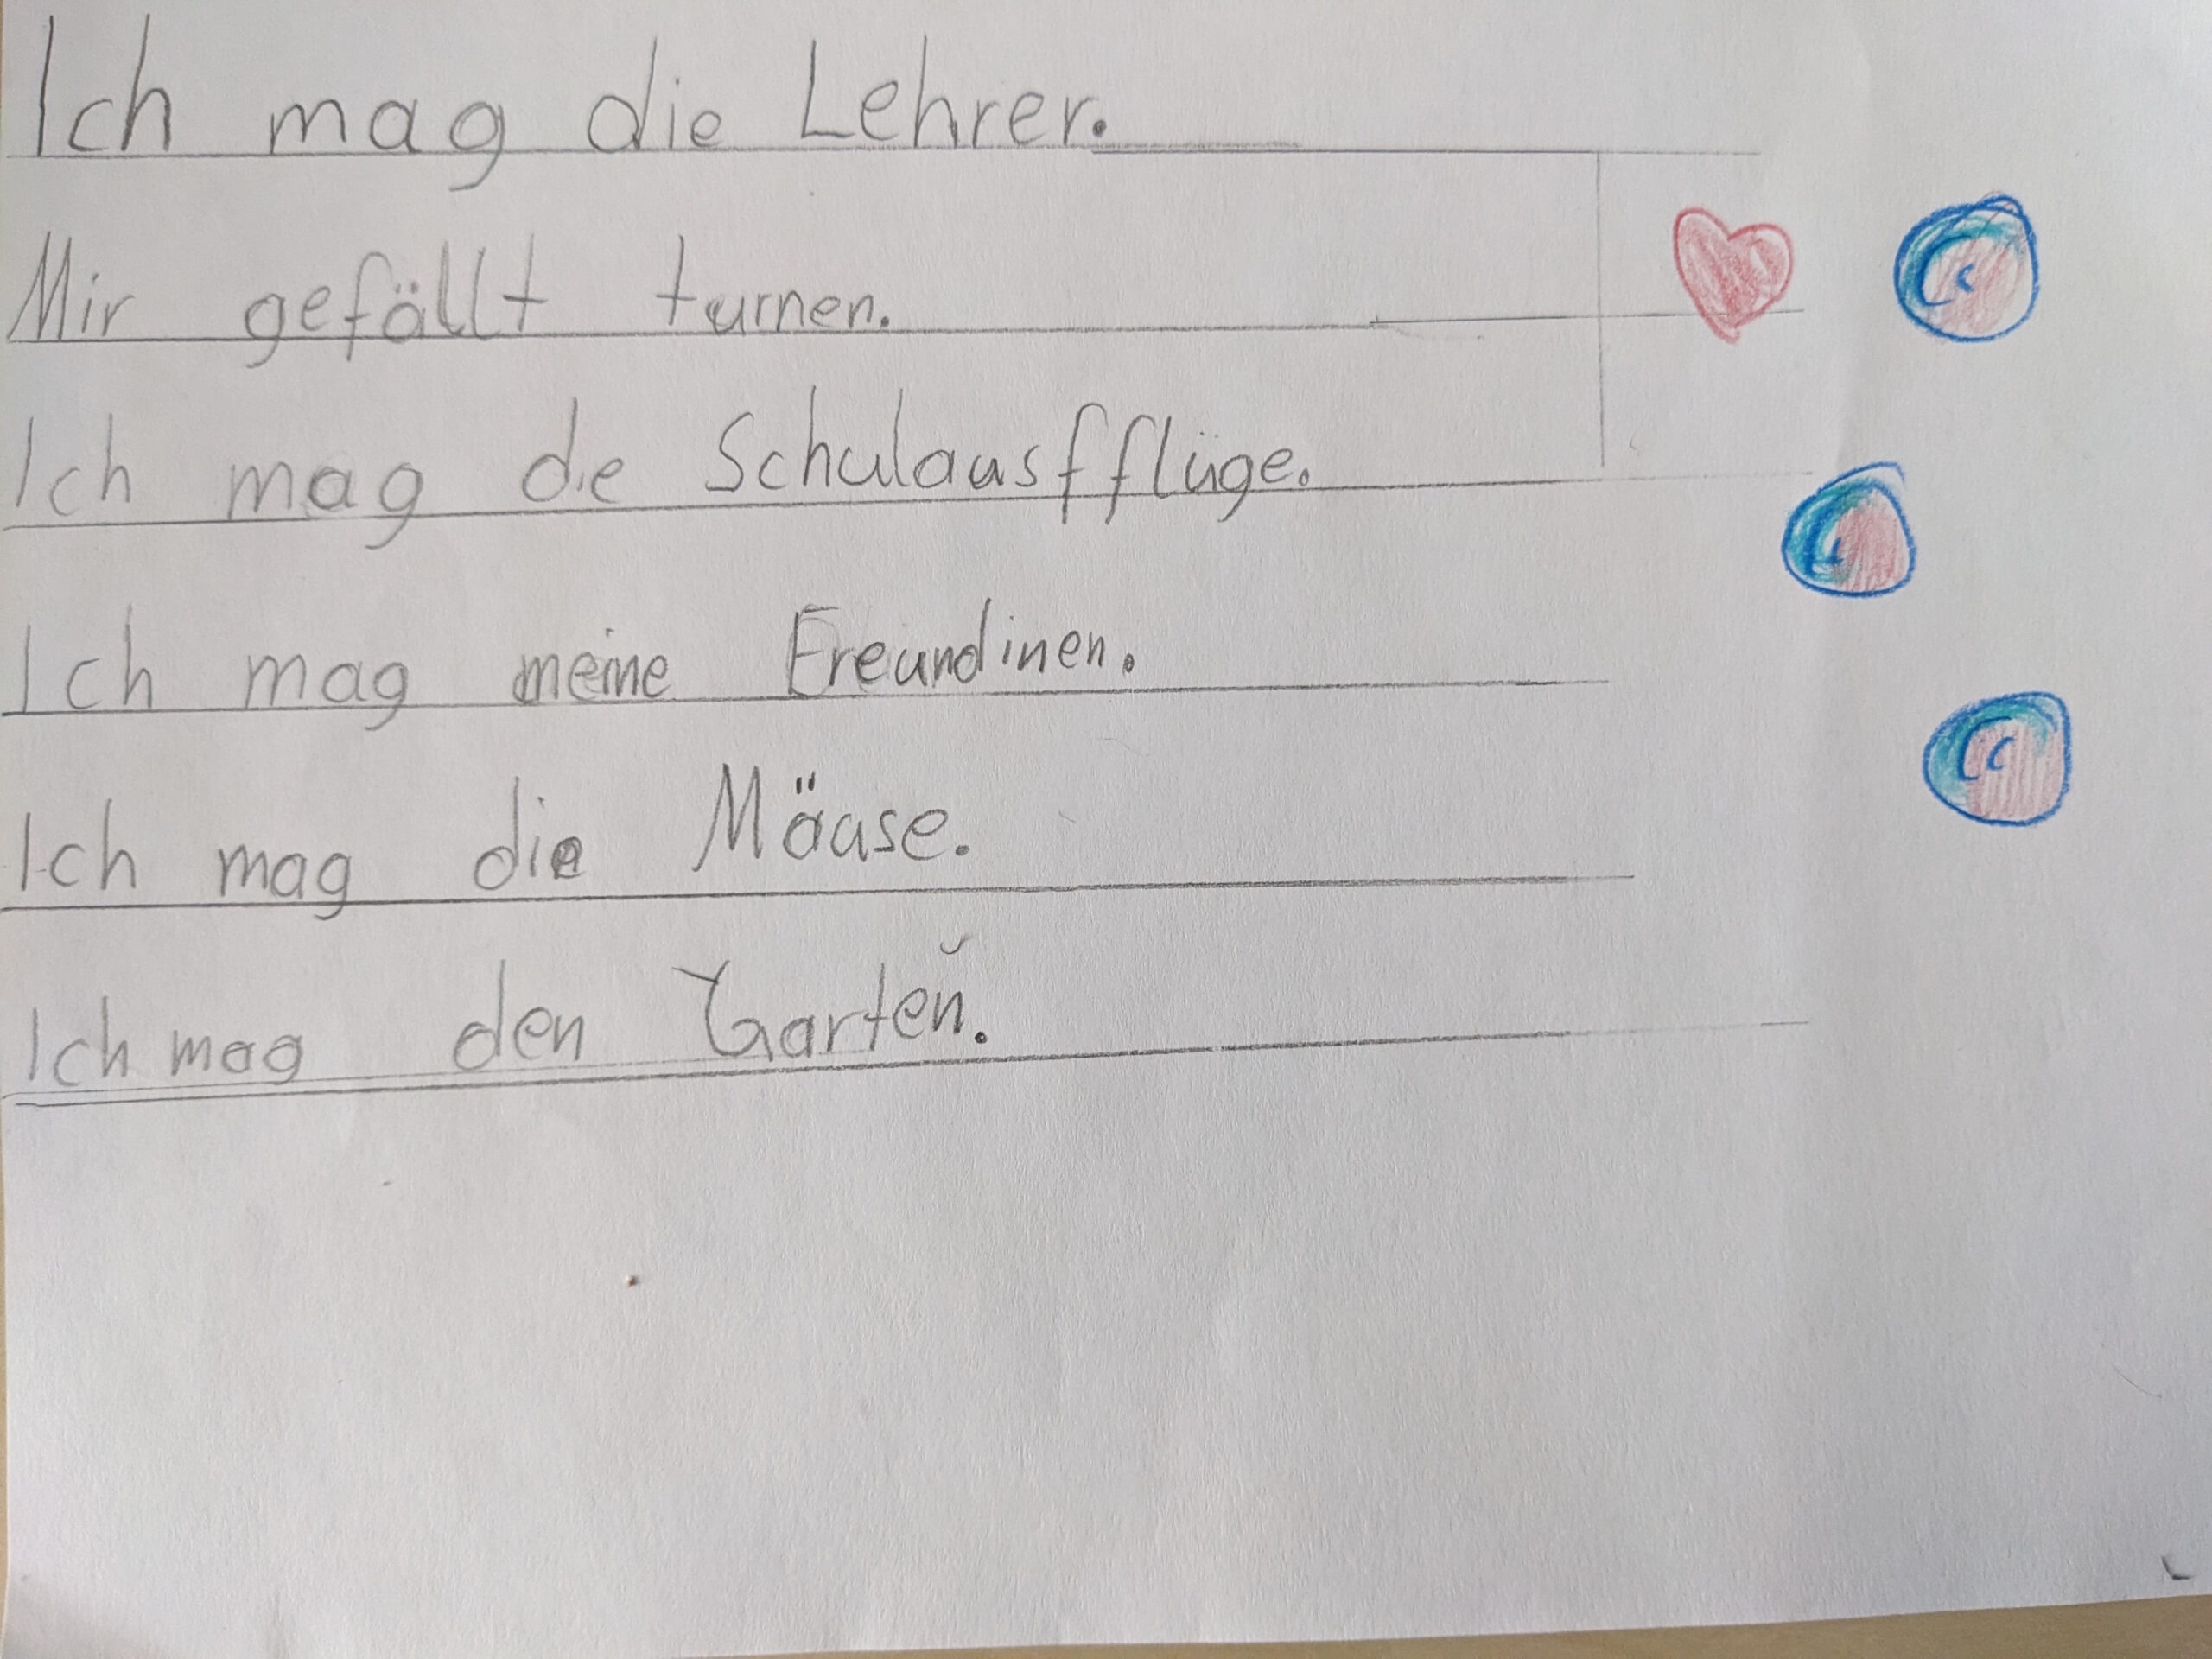 Ich mag die Lehrer.
Mir gefällt turnen.
Ich mag die Schulausfflüge.
Ich mag meine Freundinen.
Ich mag die Mäuse.
Ich mag den Garten.